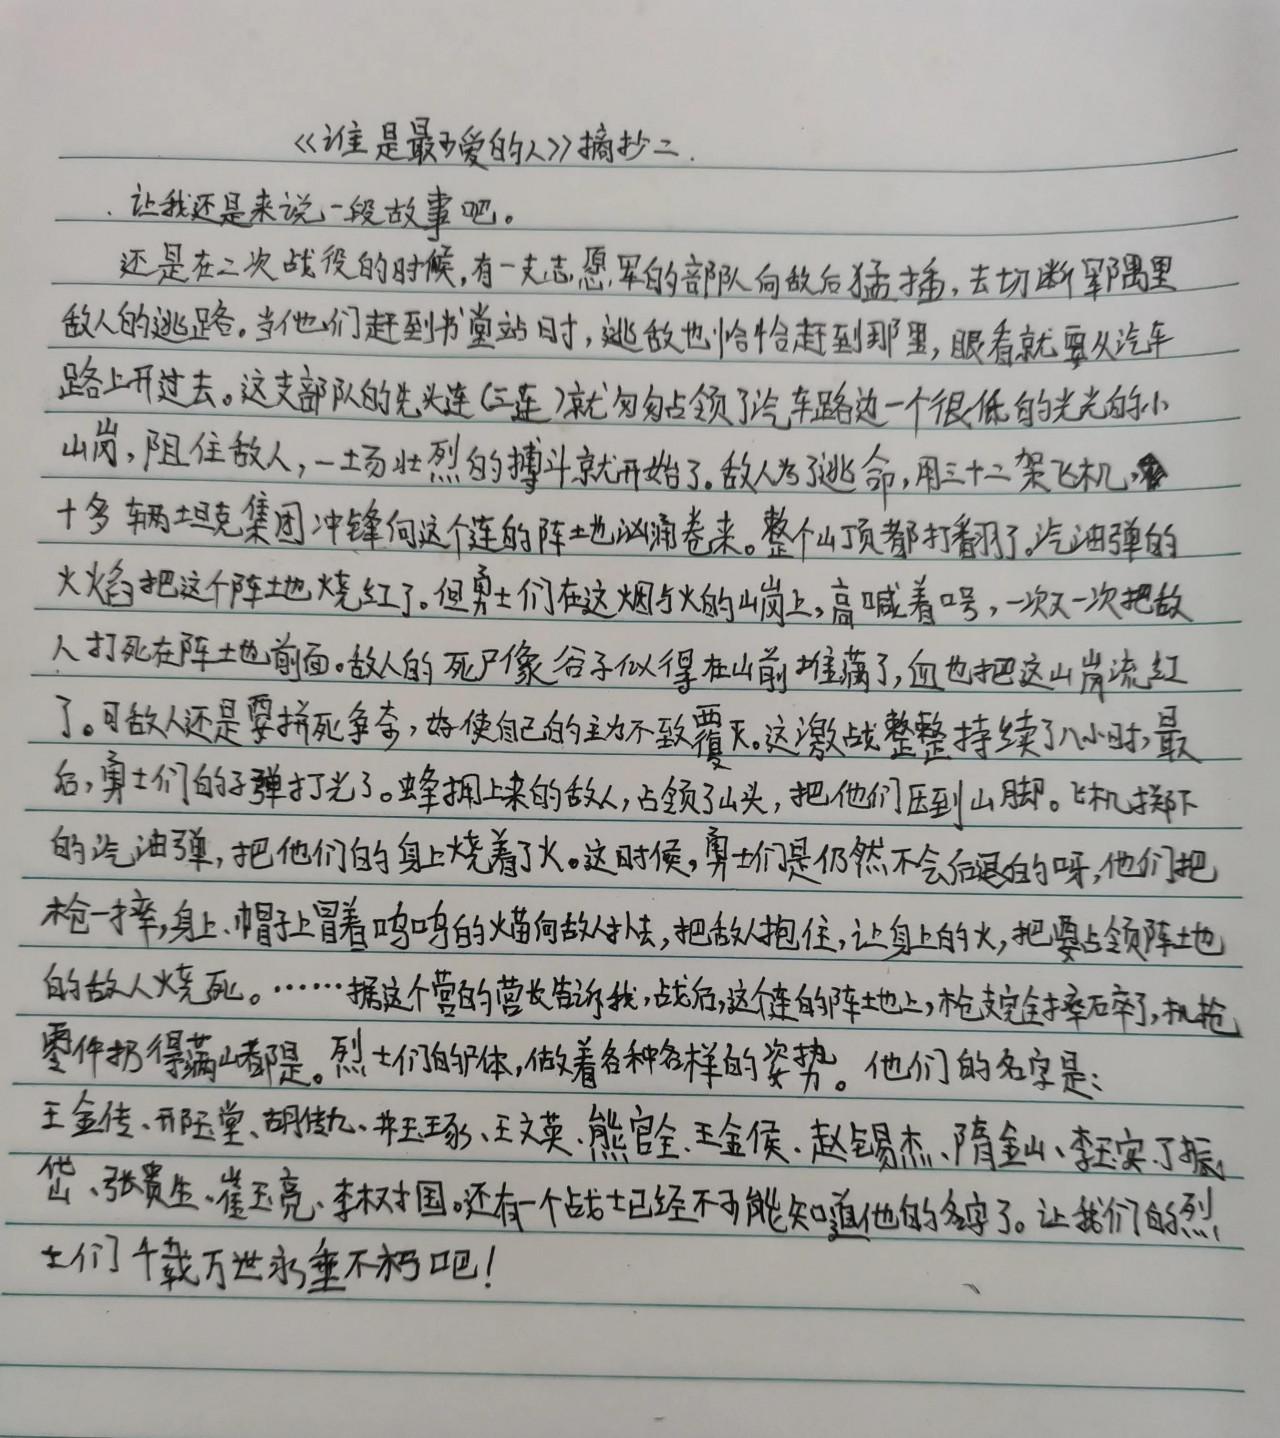 《谁是最可爱的人》摘抄二.
让我还是来说一段故事吧。
还是在二次战役的时候,有一支志愿军的部队向敌后猛插,去切断军隅里
敌人的逃路。当他们赶到书堂站时,逃敌也恰恰赶到那里,眼看就要从汽车
路上开过去。这支部队的先头连(三连)就匆匆占领了汽车路边一个很低的光光的小
山岗,阻住敌人,一场壮烈的搏斗就开始了。敌人为了逃命,用三十二架飞机,
十多辆坦克集团冲锋向这个连的阵地汹涌卷来。整个山顶都打翻了。汽油弹的
火焰把这个阵地烧红了。但勇士们在这烟与火的山岗上,高喊着口号,一次又一次把敌
人打死在阵地前面。敌人的死尸像谷子似得在山前堆满了,血也把这山岗流红
了。可敌人还是要拼死争夺,好使自己的主力不致覆灭。这激战整整持续了八小时,最
后,勇士们的子弹打光了。蜂拥上来的敌人,占领了山头,把他们压到山脚。飞机掷下
的汽油弹,把他们的身上烧着了火。这时候,勇士们是仍然不会后退的呀,他们把
枪一摔,身上、帽子上冒着呜呜的火苗向敌人扑去,把敌人抱住,让身上的火,把要占领阵地
的敌人烧死。……据这个营的营长告诉我,战后,这个连的阵地上,枪支完全摔碎了,机枪
零件扔得满山都是。烈士们的尸体,做着各种各样的姿势。他们的名字是:
王金传、邢玉堂、胡传九、井玉琢、王文英、熊官全、王金侯、赵锡杰、隋金山、李玉安、丁振
岱、张贵生、崔玉亮、李树国。还有一个战士已经不可能知道他的名字了。让我们的烈
士们千载万世永垂不朽吧!